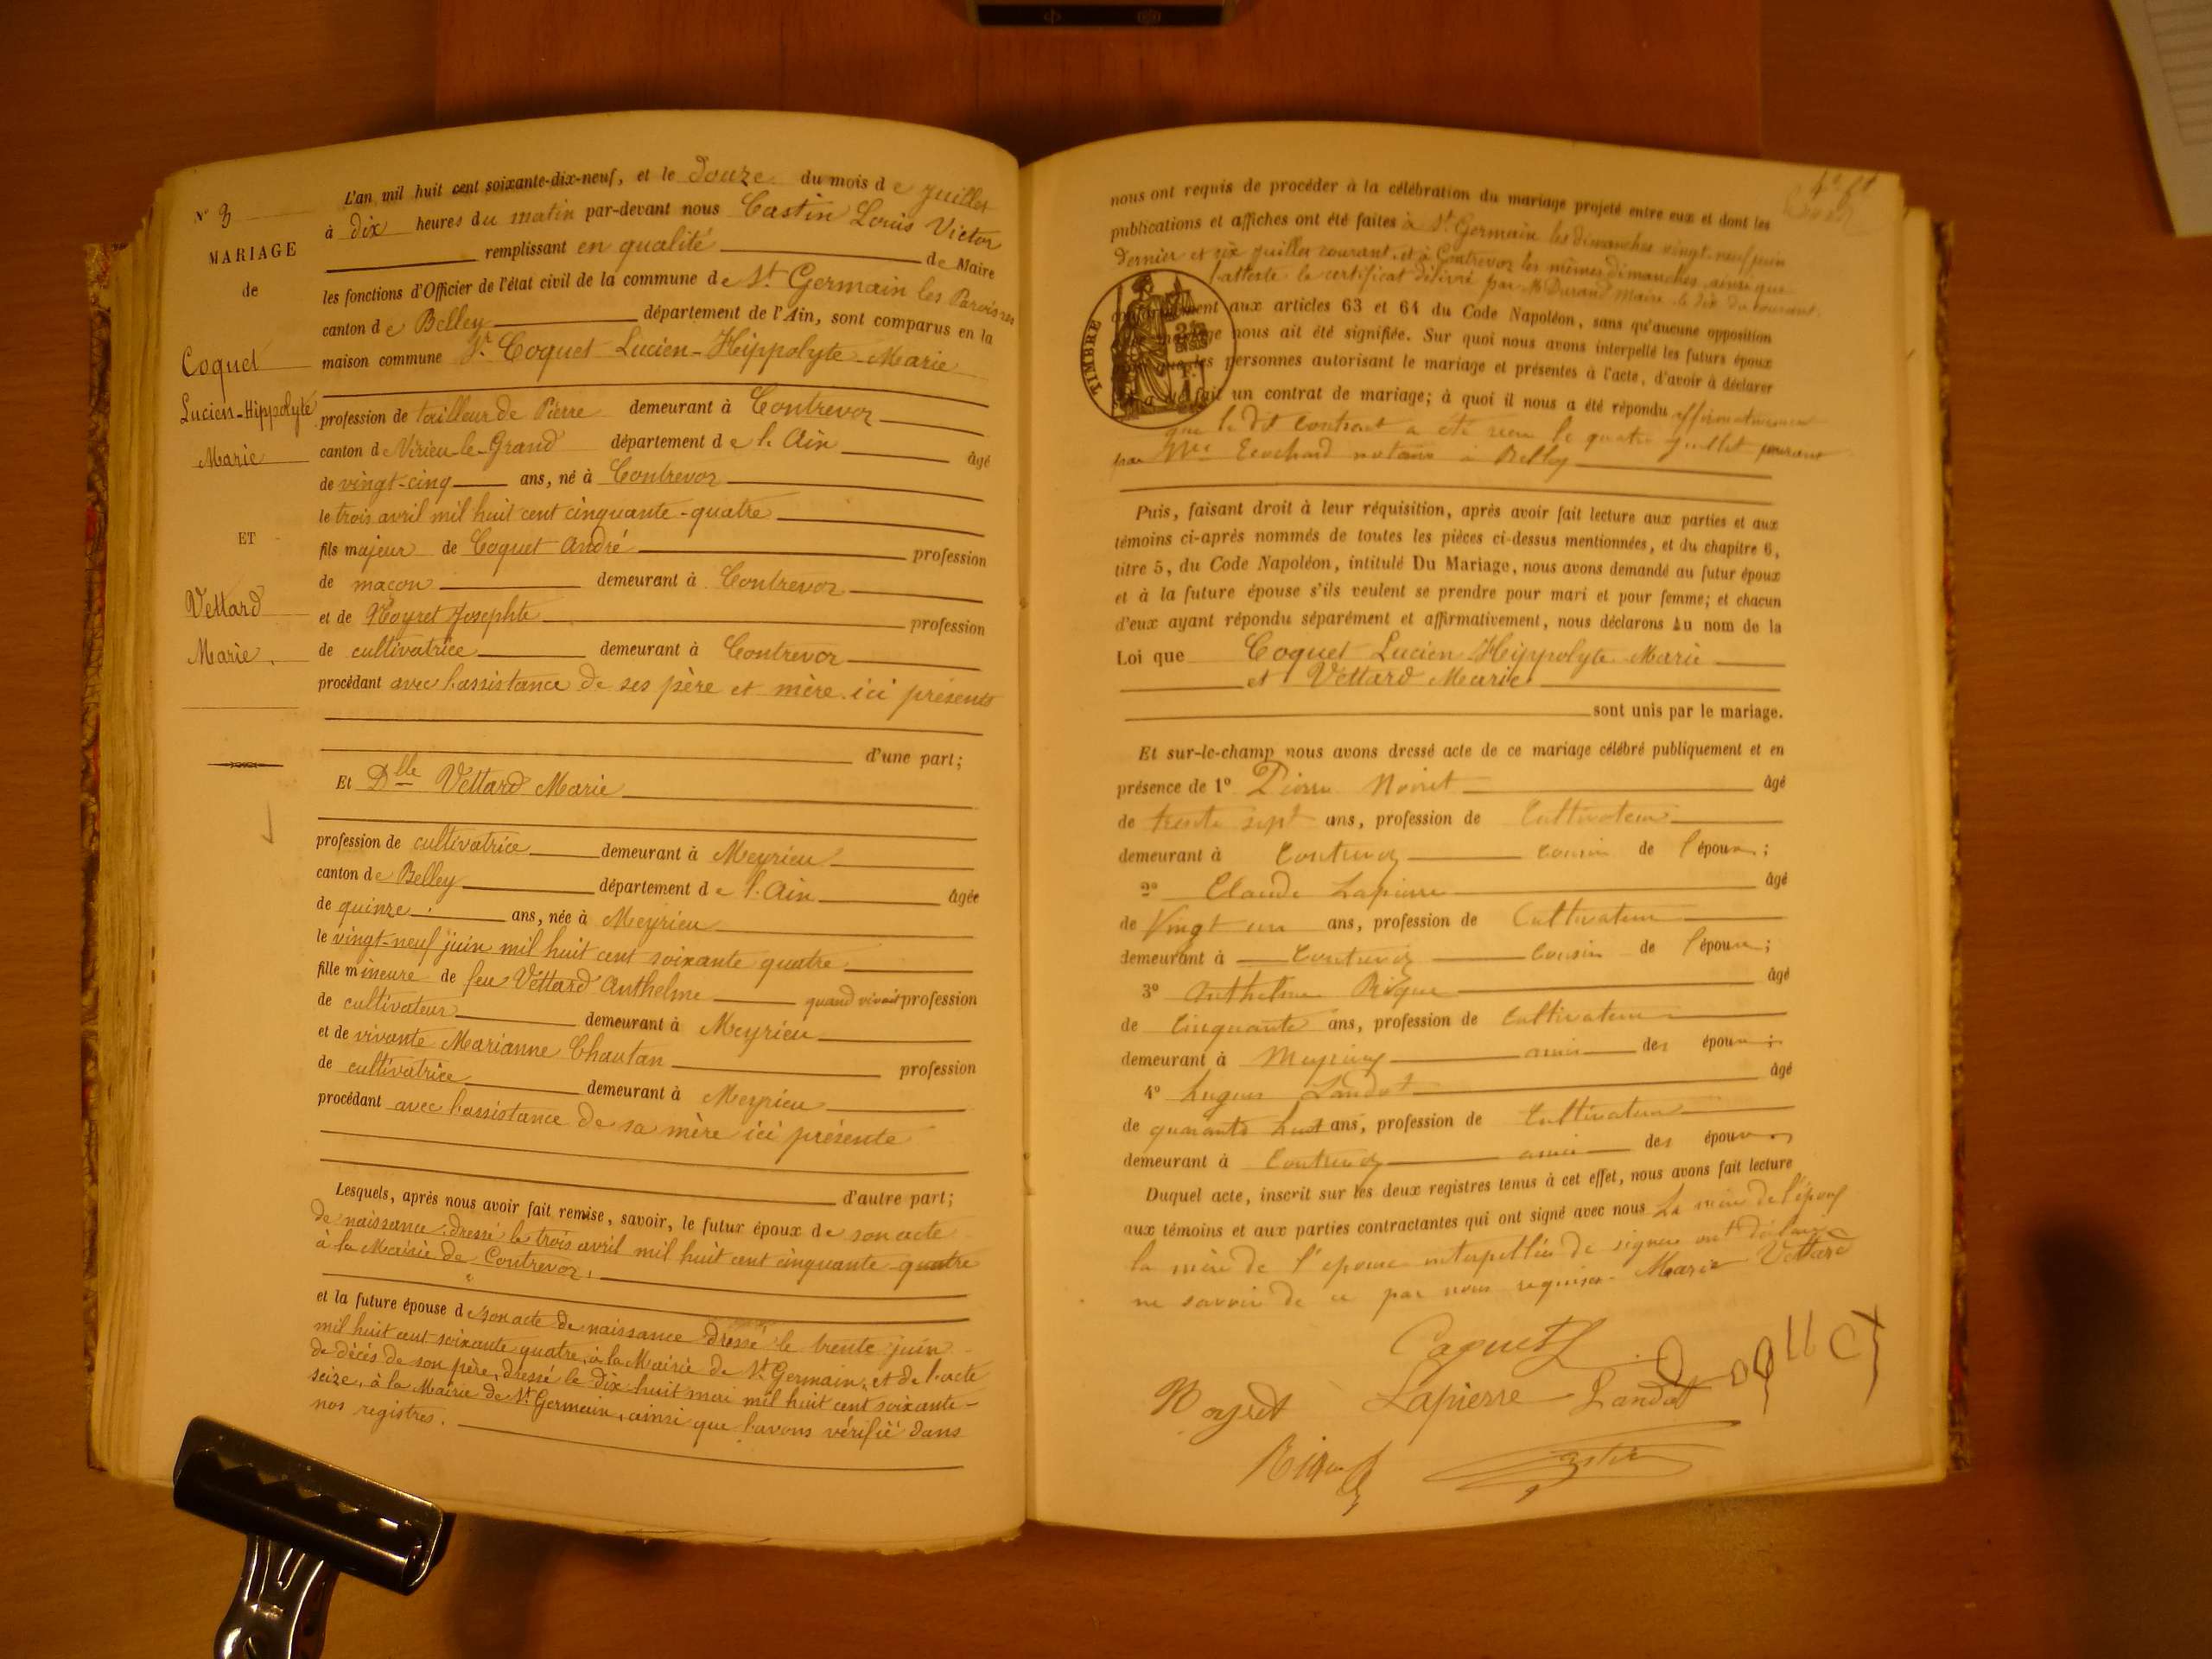 N° 3
MARIAGE
de
Coquet
Lucien-Hippolyte
Marie
ET
Vettard
Marie.
L'an mil huit cent soixante-dix-neuf, et le douze du mois de juillet
à dix heures du matin par-devant nous Castin Louis Victor
remplissant en qualité de Maire
les fonctions d'Officier de l'état civil de la commune de St Germain les Paroisses
canton de Belley département de l'Ain, sont comparus en la
maison commune Sr Coquet Lucien-Hippolyte-Marie
profession de tailleur de Pierre demeurant à Contrevoz
canton de Virieu-le-Grand département de l'Ain âgé
de vingt-cinq ans, né à Contrevoz
le trois avril mil huit cent cinquante-quatre
fils majeur de Coquet André profession
de maçon demeurant à Contrevoz
et de Noyret Josephte profession
de cultivatrice demeurant à Contrevoz
procédant avec l'assistance de ses père et mère ici présents
d'une part;
Et Dlle Vettard Marie
profession de cultivatrice demeurant à Meyrieu
canton de Belley département de l'Ain âgée
de quinze ans, née à Meyrieu
le vingt-neuf juin mil huit cent soixante quatre
fille mineure de feu Vettard Anthelme quand vivait profession
de cultivateur demeurant à Meyrieu
et de vivante Marianne Chautan profession
de cultivatrice demeurant à Meyrieu
procédant avec l'assistance de sa mère ici présente
d'autre part;
Lesquels, après nous avoir fait remise, savoir, le futur époux de son acte
de naissance, dressé le trois avril mil huit cent cinquante-quatre
à la Mairie de Contrevoz,
et la future épouse de son acte de naissance dressé le trente juin
mil huit cent soixante quatre, à la Mairie de St Germain, et de l'acte
de décès de son père, dressé le dix huit mai mil huit cent soixante-
seize, à la Mairie de St Germain, ainsi que l'avons vérifié dans
nos registres.
nous ont requis de procéder à la célébration du mariage projeté entre eux et dont les
publications et affiches ont été faites à St Germain les dimanches vingt-neuf juin
dernier et six juillet courant, et à Contrevoz les mêmes dimanches ainsi que
l'atteste le certificat délivré par Mr Durand Maire le dix du courant.
TIMBRE
aux articles 63 et 64 du Code Napoléon, sans qu'aucune opposition
nous ait été signifiée. Sur quoi nous avons interpellé les futurs époux
les personnes autorisant le mariage et présentes à l'acte, d'avoir à déclarer
fait un contrat de mariage; à quoi il nous a été répondu affirmativement
que le dit contrat a été reçu le quatre juillet courant
par Me notaire à Belley
Puis, faisant droit à leur réquisition, après avoir fait lecture aux parties et aux
témoins ci-après nommés de toutes les pièces ci-dessus mentionnées, et du chapitre 6,
titre 5, du Code Napoléon, intitulé Du Mariage, nous avons demandé au futur époux
et à la future épouse s'ils veulent se prendre pour mari et pour femme; et chacun
d'eux ayant répondu séparément et affirmativement, nous déclarons Au nom de la
Loi que Coquet Lucien Hippolyte Marie
et Vettard Marie
sont unis par le mariage.
Et sur-le-champ nous avons dressé acte de ce mariage célébré publiquement et en
présence de 1° Pierre Noiret âgé
de trente sept ans, profession de Cultivateur
demeurant à Contrevoz cousin de l'époux;
2° Claude Lapierre âgé
de Vingt un ans, profession de Cultivateur
demeurant à Contrevoz Cousin de l'époux;
3° Anthelme Rigue âgé
de Cinquante ans, profession de Cultivateur
demeurant à Meyrieu ami des époux;
4° hugues Landot âgé
de quarante huit ans, profession de Cultivateur
demeurant à Contrevoz ami des époux
Duquel acte, inscrit sur les deux registres tenus à cet effet, nous avons fait lecture
aux témoins et aux parties contractantes qui ont signé avec nous la mère de l'époux
la mère de l'épouse interpellées de signer ont déclaré
ne savoir de ce par nous requises. Marie Vettard
Coquet
Coquet
Noyret Lapierre Landot
Rigue Castin